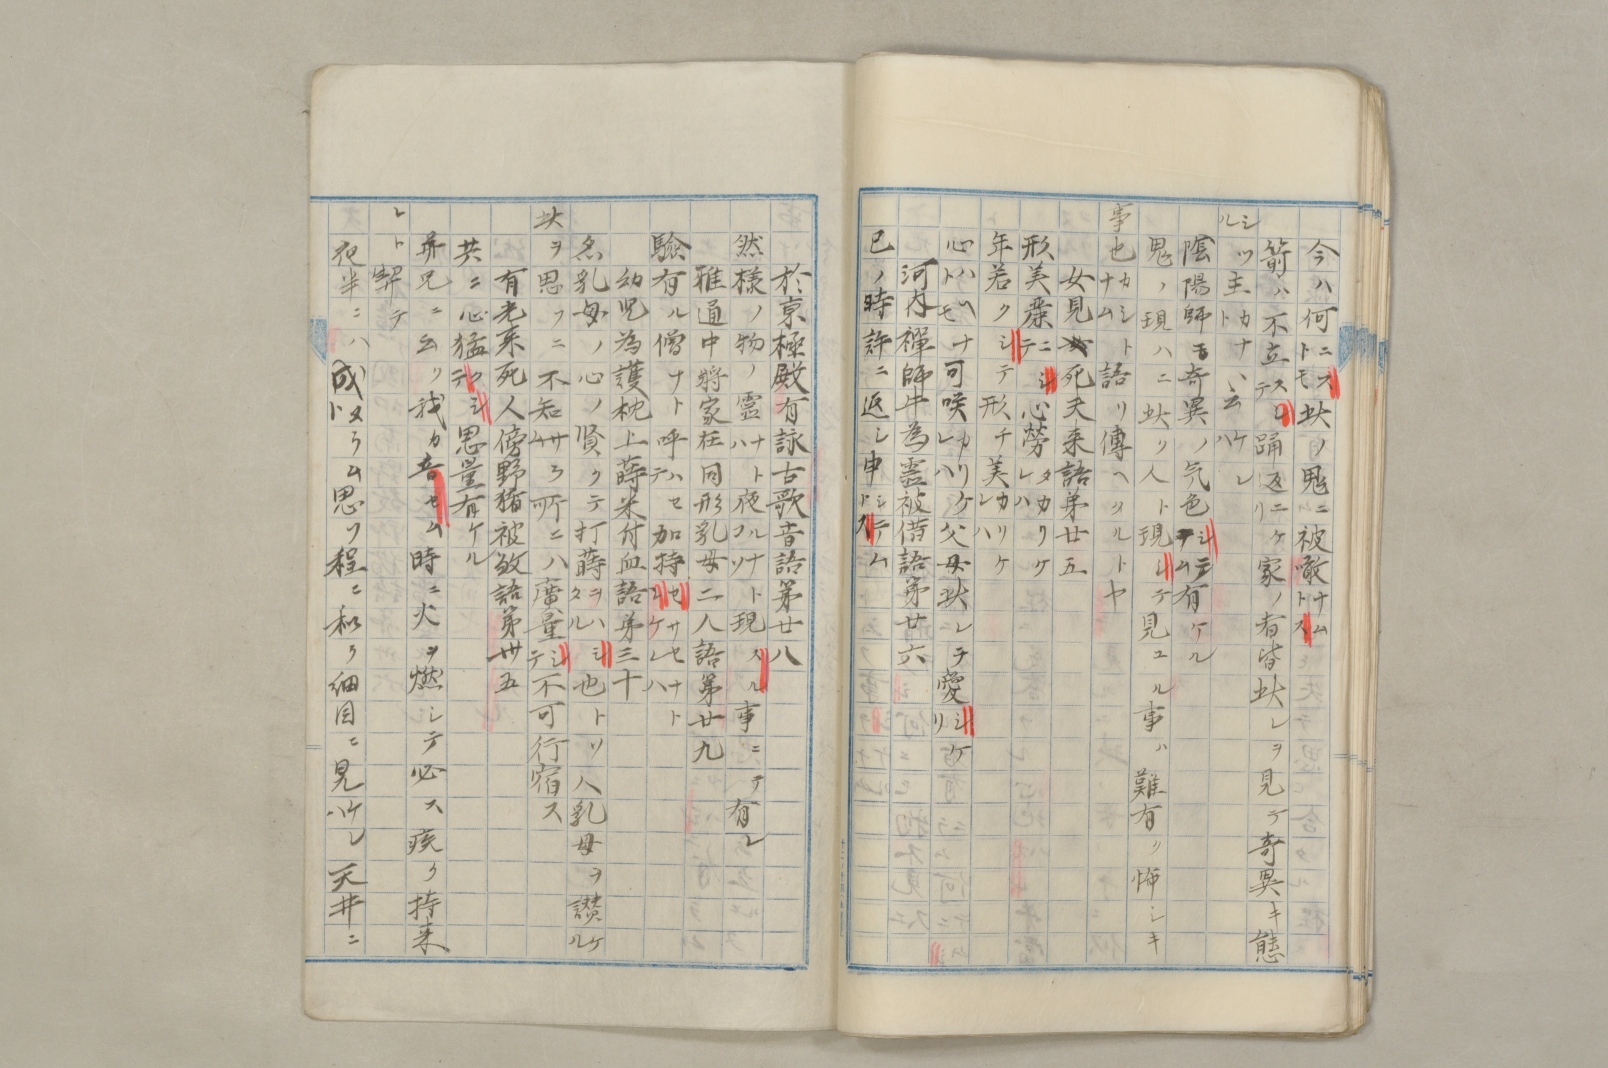 今ハ何ニストモ此ノ鬼ニ被噉ナムトス
箭ハ不立スシテ踊返ニケリ家ノ者皆此レヲ見テ奇異キ態
シツルカナト主ニ云ケレハ
陰陽師モ奇異ノ気色シテナム有ケル
鬼ノ現ハニ此ク人ト現シテ見ユル事ハ難有ク怖シキ
事也カシトナム語リ傳ヘタルトヤ
女見死夫来語第廿五
形美麗ニシテ心勞タカリケレハ
年若クシテ形チ美カリケレハ
心ハヘナトモ可咲カリケレハ父母此レヲ愛シケリ
河内禪師牛為霊被借語第廿六
巳ノ時許ニ返シ申シテムトス
於京極殿有詠古歌音語第廿八
然様ノ物ノ霊ナトハ夜ルナトコソ現スル事ニテ有レ
雅通中將家在同形乳母二人語第廿九
驗有ル僧ナト呼ハセテ加持セサセナトシケレハ
幼児為護枕上蒔米付血語第三十
乳母ノ心ノ賢クテ打蒔ヲシタルハ也トソ人乳母ヲ讃ケル
此ヲ思フニ不知サラム所ニハ廣量シテ不可行宿ス
有光来死人傍野猪被殺語第卅五
共ニ心猛クシテ思量有ケル
弟兄ニ云ク我カ音セム時ニ火ヲ燃シテ必ス疾ク持来
レト契テ
夜半ニハ成ヌラムト思フ程ニ和ラ細目ニ見ケレハ天井ニ